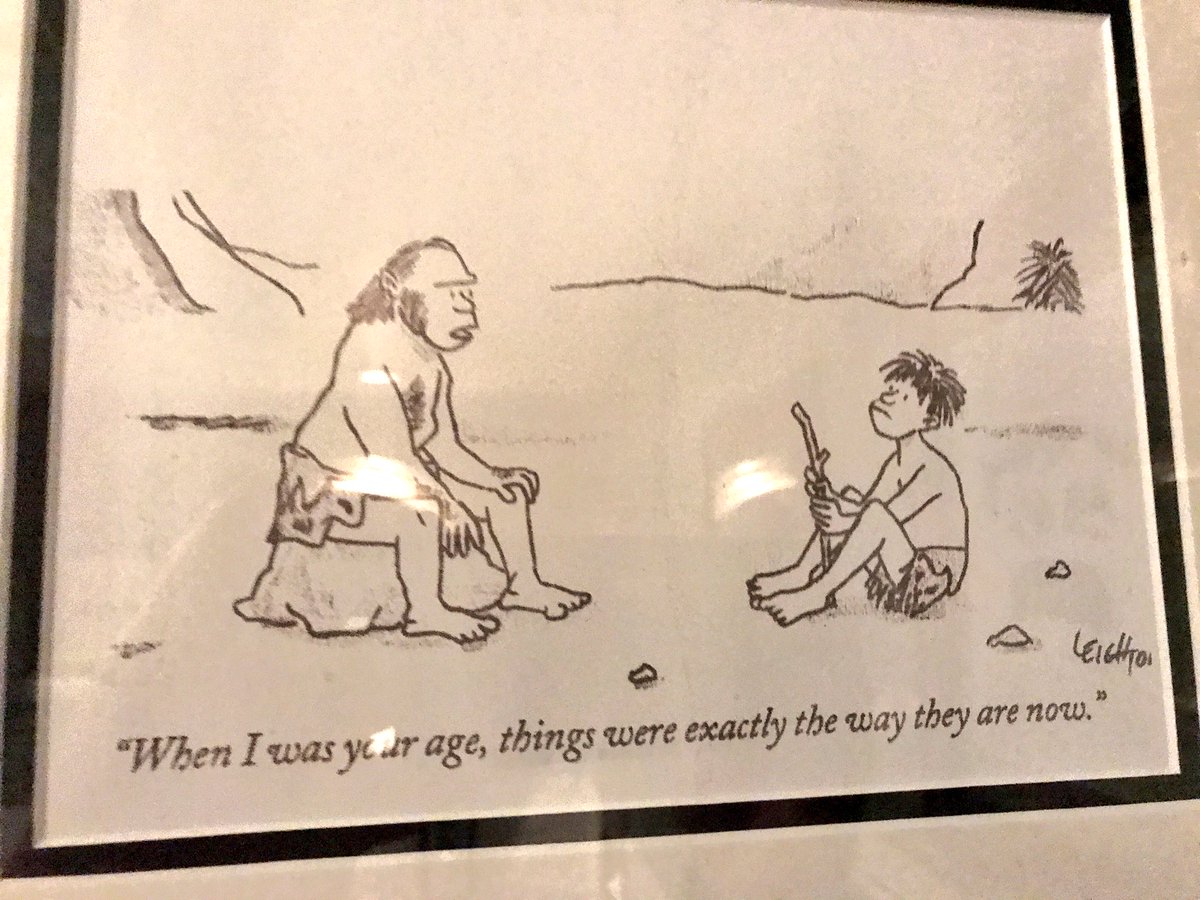 LEIGHTON
"When I was your age, things were exactly the way they are now."